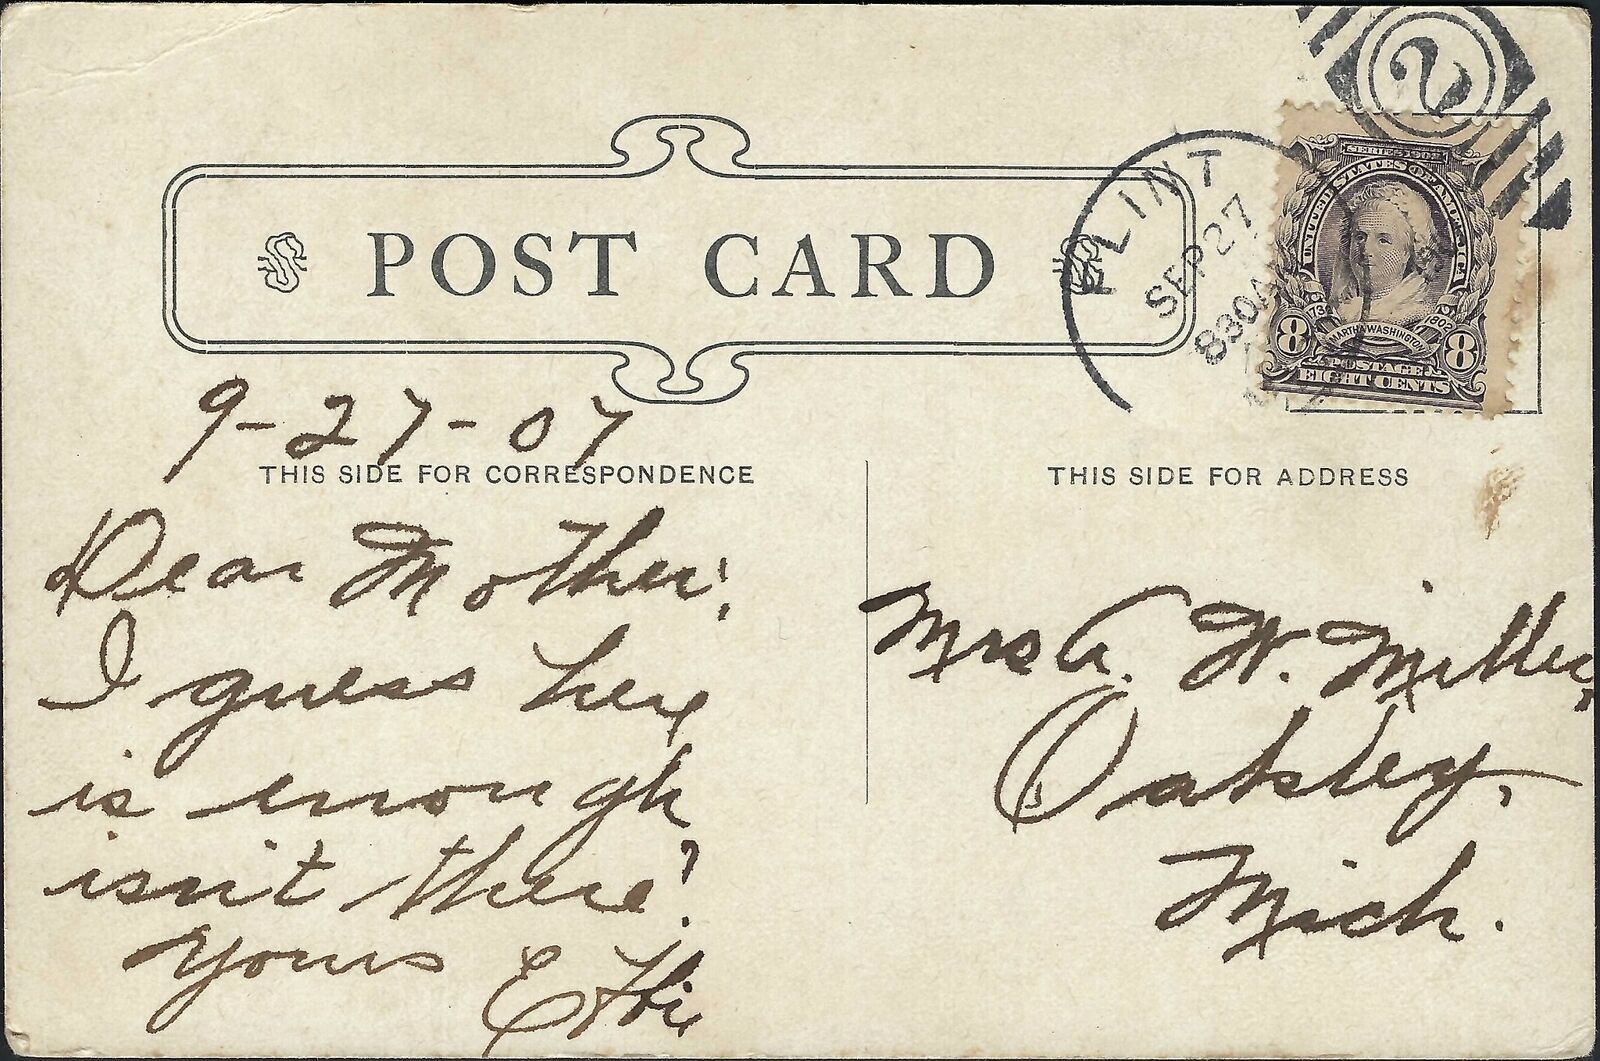 2
FLINT
SEP 27
830A
SERIES 1902
UNITED STATES OF AMERICA
1802
MARTHA WASHINGTON
8 8
POSTAGE
EIGHT CENTS
POST CARD
9-27-07
THIS SIDE FOR CORRESPONDENCE
Dear Mother;
I guess here
is enough
isn't there?
Yours Effie
THIS SIDE FOR ADDRESS
Mrs A. W. Miller,
Oakley,
Mich.